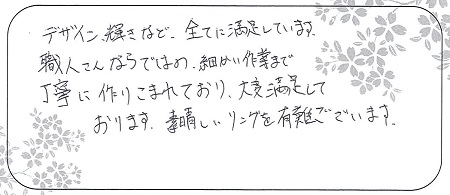 デザイン、輝きなど、全てに満足しています。
職人さんならではの、細かい作業まで
丁寧に作りこまれており、大変満足して
おります。素晴しいリングを有難うございます。